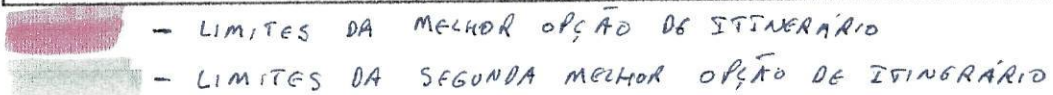 - LIMITES DA MELHOR OPÇÃO DE ITINERÁRIO
- LIMITES DA SEGUNDA MELHOR OPÇÃO DE ITINERÁRIO